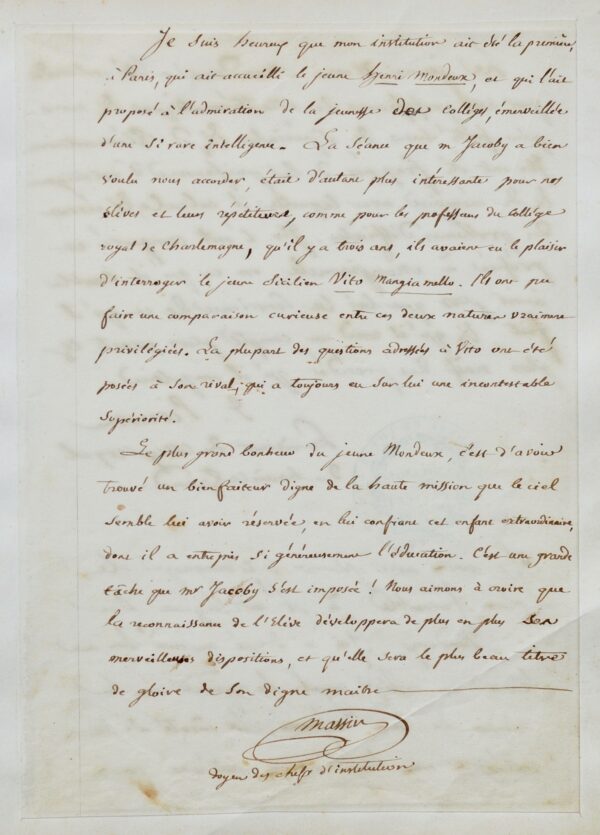 Je suis heureux que mon institution ait été la première,
à Paris, qui ait accueilli le jeune Henri Mondeux, et qui l'ait
proposé à l'admiration de la jeunesse des colléges, émerveillée
d'une si rare intelligence. La Séance que mr Jacoby a bien
voulu nous accorder, était d'autant plus intéressante pour nos
élèves et leurs répétiteurs, comme pour les professeurs du Collége
royal de Charlemagne, qu'il y a trois ans, ils avaient eu le plaisir
d'interroger le jeune Sicilien Vito Mangiamello. Ils ont pu
faire une comparaison curieuse entre ces deux natures vraiment
privilégiées. La plupart des questions adressées à Vito ont été
posées à son rival, qui a toujours eu sur lui une incontestable
Supériorité.
Le plus grand bonheur du jeune Mondeux, c'est d'avoir
trouvé un bienfaiteur digne de la haute mission que le ciel
semble lui avoir réservée, en lui confiant cet enfant extraordinaire,
dont il a entrepris si généreusement l'éducation. C'est une grande
tâche que mr Jacoby s'est imposée ! Nous aimons à croire que
la reconnaissance de l'Elève développera de plus en plus ses
merveilleuses dispositions, et qu'elle sera le plus beau titre
de gloire de son digne maître
Massin
doyen des chefs d'institution